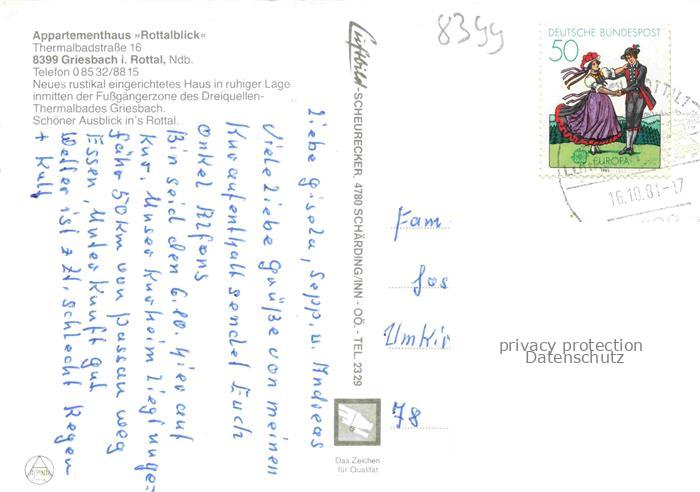 Appartementhaus »Rottalblick«
Thermalbadstraße 16
8399 Griesbach i. Rottal, Ndb.
Telefon 0 85 32 / 88 15
Neues rustikal eingerichtetes Haus in ruhiger Lage
inmitten der Fußgängerzone des Dreiquellen-
Thermalbades Griesbach.
Schöner Ausblick in's Rottal.
Liebe Gisela, Sepp, u. Andreas
Viele liebe Grüße von meinen
Kuraufenthalt sendet Euch
Onkel Alfons
Bin seid den 6.10. hier auf
Kur. Unser Kurheim liegt unge-
fähr 50 km von Passau weg
Essen, Unterkunft gut
Wetter ist z Zt. schlecht Regen
+ kalt
Luftbild-SCHEURECKER, 4780 SCHÄRDING/INN - OÖ. - TEL. 23 29
8399
DEUTSCHE BUNDESPOST
50
EUROPA
16.10.81-17
Fam
Jos
Umkir
78
privacy protection
Datenschutz
Das Zeichen
für Qualität
ALPINA